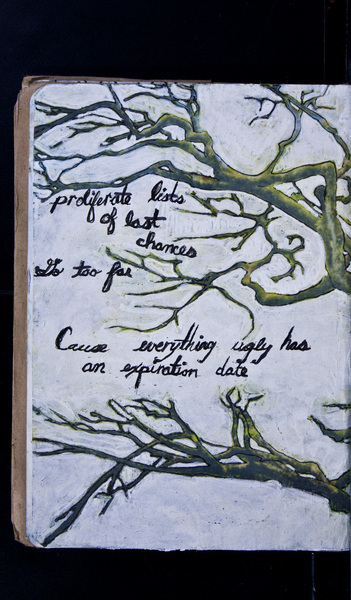 proliferate lists
of last
chances
Go too far
Cause everything ugly has
an expiration date